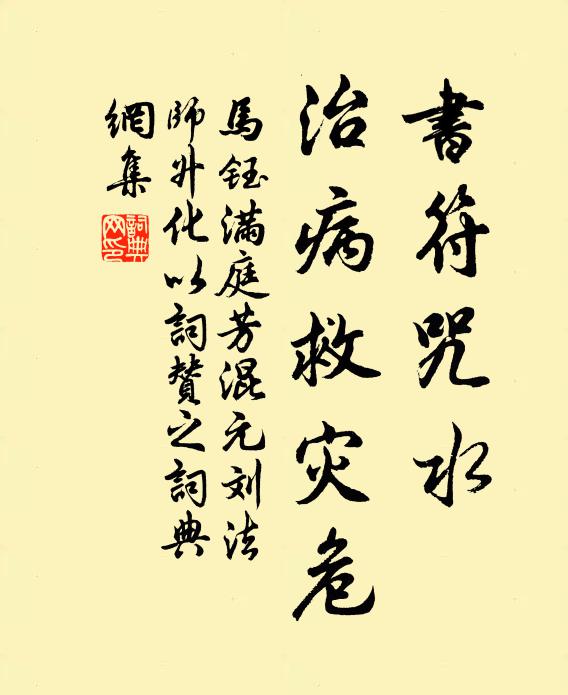 書符咒水
治病救灾危
馬鈺滿庭芳混元刘法
師升化以詞贊之詞典
網集
詞典
网印